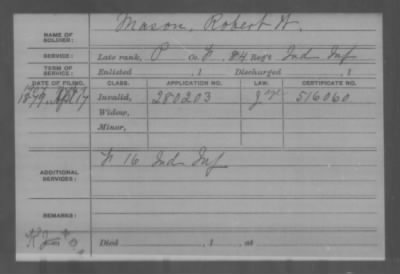 NAME OF SOLDIER: Mason, Robert W.
SERVICE: Late rank, P Co. F, 84 Reg't Ind Inf
TERM OF SERVICE: Enlisted , 1 Discharged , 1
DATE OF FILING. CLASS. APPLICATION NO. LAW. CERTIFICATE NO.
1879 Invalid, 280203 516060
Widow,
Minor,
ADDITIONAL SERVICES: 16 Ind Inf
REMARKS:
Died , 1 , at